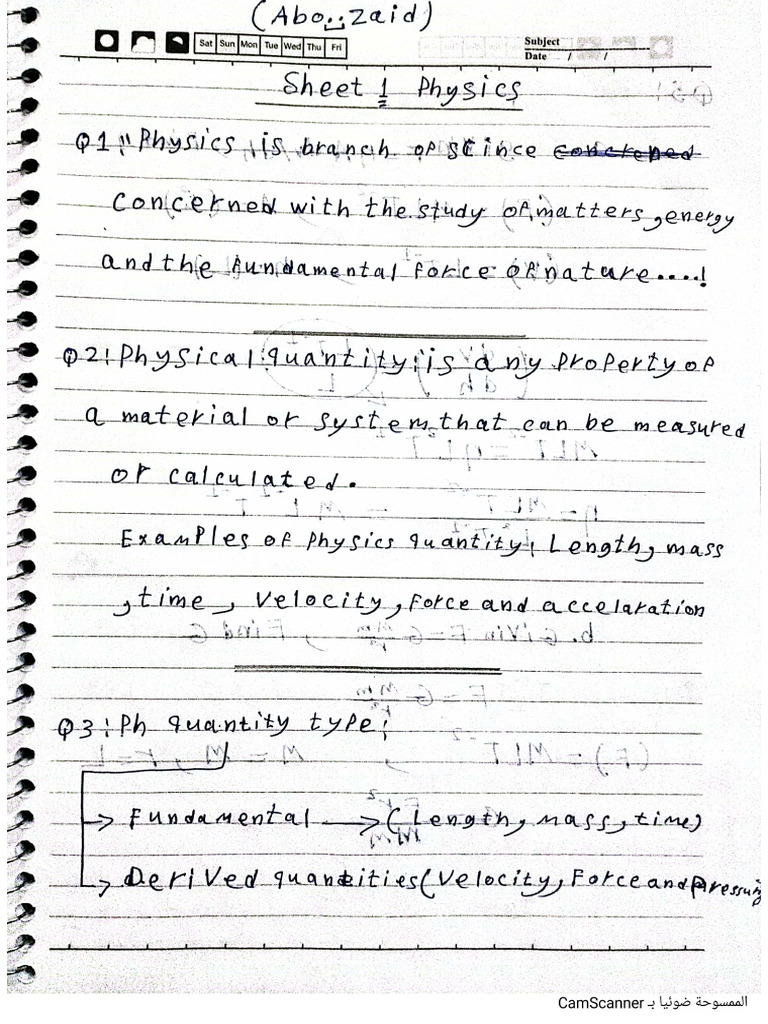 (Abo Zaid)
Sat Sun Mon Tue Wed Thu Fri
Subject
Date / /
Sheet 1 Physics
Q1: Physics is branch of science concrened
Concerned with the study of matters, energy
and the fundamental force of nature....!
Q2: Physical quantity: is any property of
a material or system that can be measured
or calculated.
Examples of Physics quantity: Length, mass
, time, Velocity, Force and accelaration
Q3: Ph quantity type:
→ Fundamental → (Length, mass, time)
→ Derived quantities (Velocity, Force and
الممسوحة ضوئيا بـ CamScanner